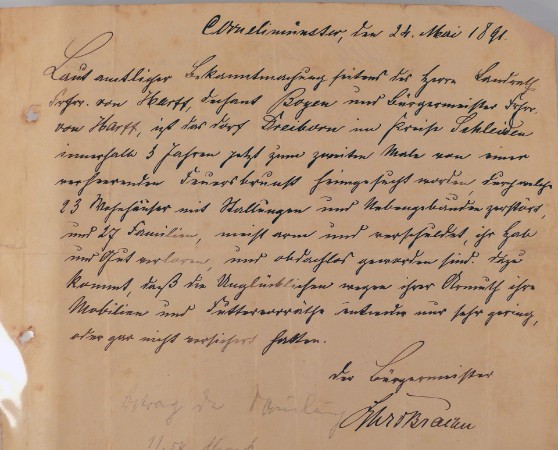 Cornelimünster, den 24. Mai 1891.
Laut amtlicher Bekanntmachung seitens des Herrn Landrath
Frhr. von Harff, Dechant Bogen und Bürgermeister Frhr.
von Harff, ist das Dorf Dreiborn im Kreise Schleiden
innerhalb 3 Jahren jetzt zum zweiten Male von einer
verheerenden Feuersbrunst heimgesucht worden, durch welche
23 Wohnhäuser mit Stallungen und Nebengebäuden zerstört,
und 27 Familien, meist arm und verschuldet, ihr Hab
und Gut verloren, und obdachlos geworden sind. Dazu
kommt, daß die Unglücklichen wegen ihrer Armuth ihre
Mobilien und Futtervorräthe entweder nur sehr gering,
oder gar nicht versichert hatten.
Der Bürgermeister
der